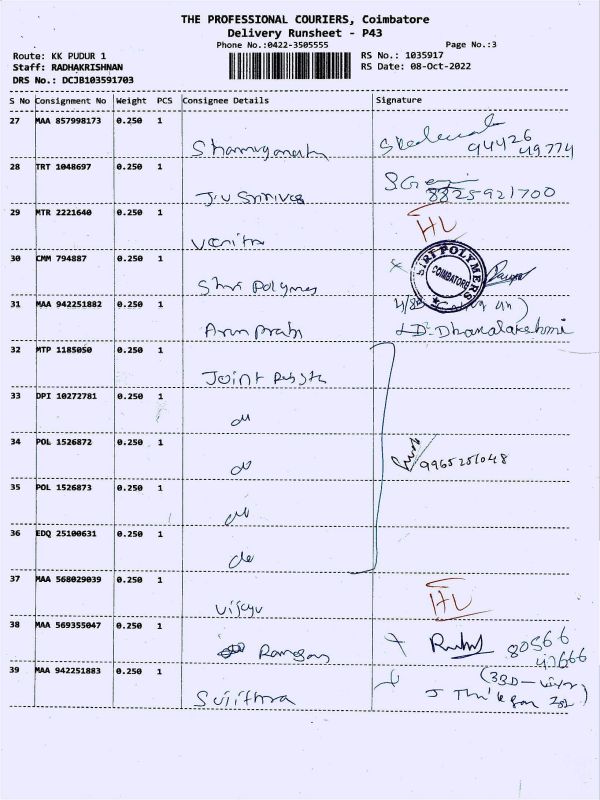 THE PROFESSIONAL COURIERS, Coimbatore
Delivery Runsheet - P43
Phone No.:0422-3505555
Page No.:3
Route: KK PUDUR 1
RS No.: 1035917
Staff: RADHAKRISHNAN
RS Date: 08-Oct-2022
DRS No.: DCJB103591703
S No Consignment No Weight PCS Consignee Details Signature
27 MAA 857998173 0.250 1
94426
49774
28 TRT 1048697 0.250 1
8825921700
29 MTR 2221640 0.250 1
HL
Vanitha
30 CMM 794887 0.250 1
SIRI POLYMERS
COIMBATORE
Shri Polymes
31 MAA 942251882 0.250 1
D. Dhanalakshmi
32 MTP 1185050 0.250 1
Joint
33 DPI 10272781 0.250 1
do
34 POL 1526872 0.250 1
do
9965251048
35 POL 1526873 0.250 1
do
36 EDQ 25100631 0.250 1
do
37 MAA 568029039 0.250 1
HL
Vijayu
38 MAA 569355047 0.250 1
80566
41666
39 MAA 942251883 0.250 1
Sujithra